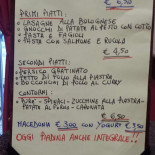 PRIMI PIATTI:
LASAGNE ALLA BOLOGNESE
GNOCCHI DI PATATE AL PESTO CON COTTO
PASTA E FAGIOLI
PASTA CON SALMONE E RUCOLA
€ 6,50
SECONDI PIATTI:
PERSICO GRATINATO
PETTO DI POLLO ALLA PIASTRA
BOCCONCINI DI POLLO AL CURRY
CONTORNI:
PURE' - SPINACI - ZUCCHINE ALLA PIASTRA-
PATATE AL FORNO - CAPONATA
MACEDONIA € 3,00 CON YOGURT € 3,50
OGGI PIADINA ANCHE INTEGRALE!!